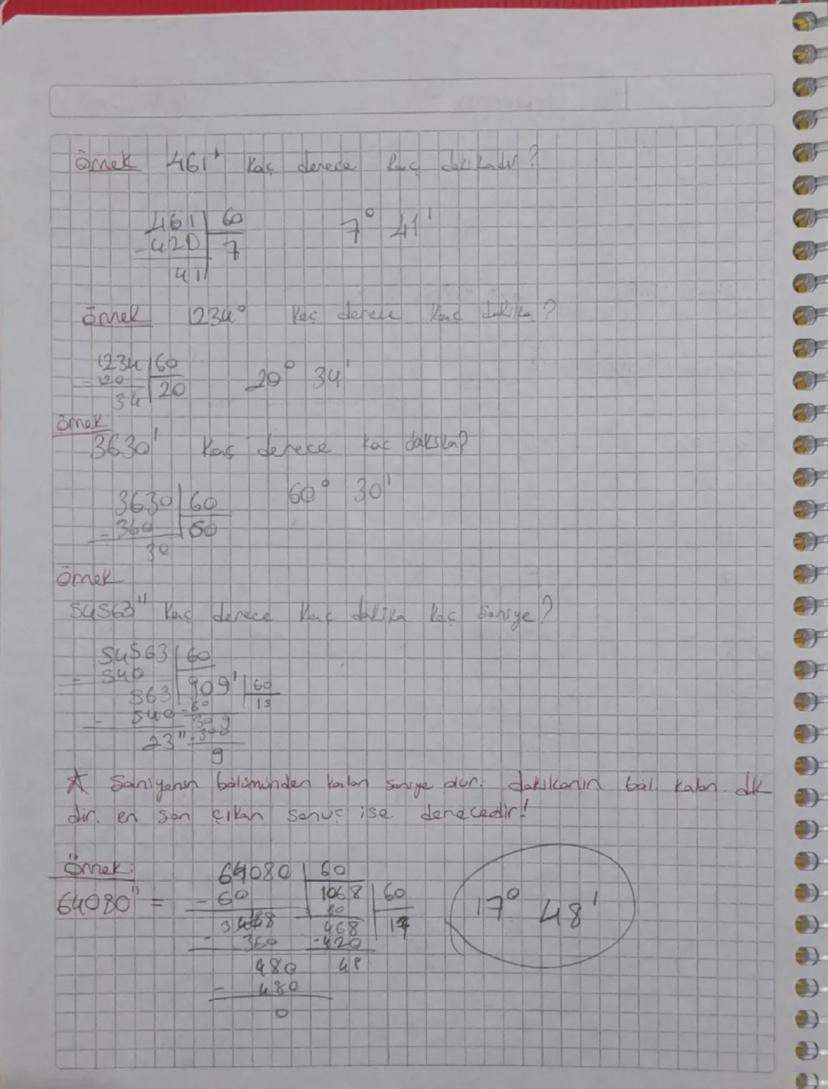 Örnek 461' kaç derece kaç dakikadır?
461 60
-420 7
41
7° 41'
Örnek 1234° kaç derece kaç dakika?
1234 60
-120 20
34
20° 34'
Örnek
3630' kaç derece kaç dakika?
3630 60
-360 60
30
60° 30'
Örnek
54563" kaç derece kaç dakika kaç saniye?
54563 60
- 540 909' 60
563 -60 15
- 540 309
23" -300
9
★ Saniyenin bölümünden kalan saniye olur. dakikanın böl. kalan dk
dir. en son çıkan sonuç ise derecedir!
Örnek:
64080" =
64080 60
- 60 1068 60
60 17
360 468
-420
480 48
- 480
0
17° 48'